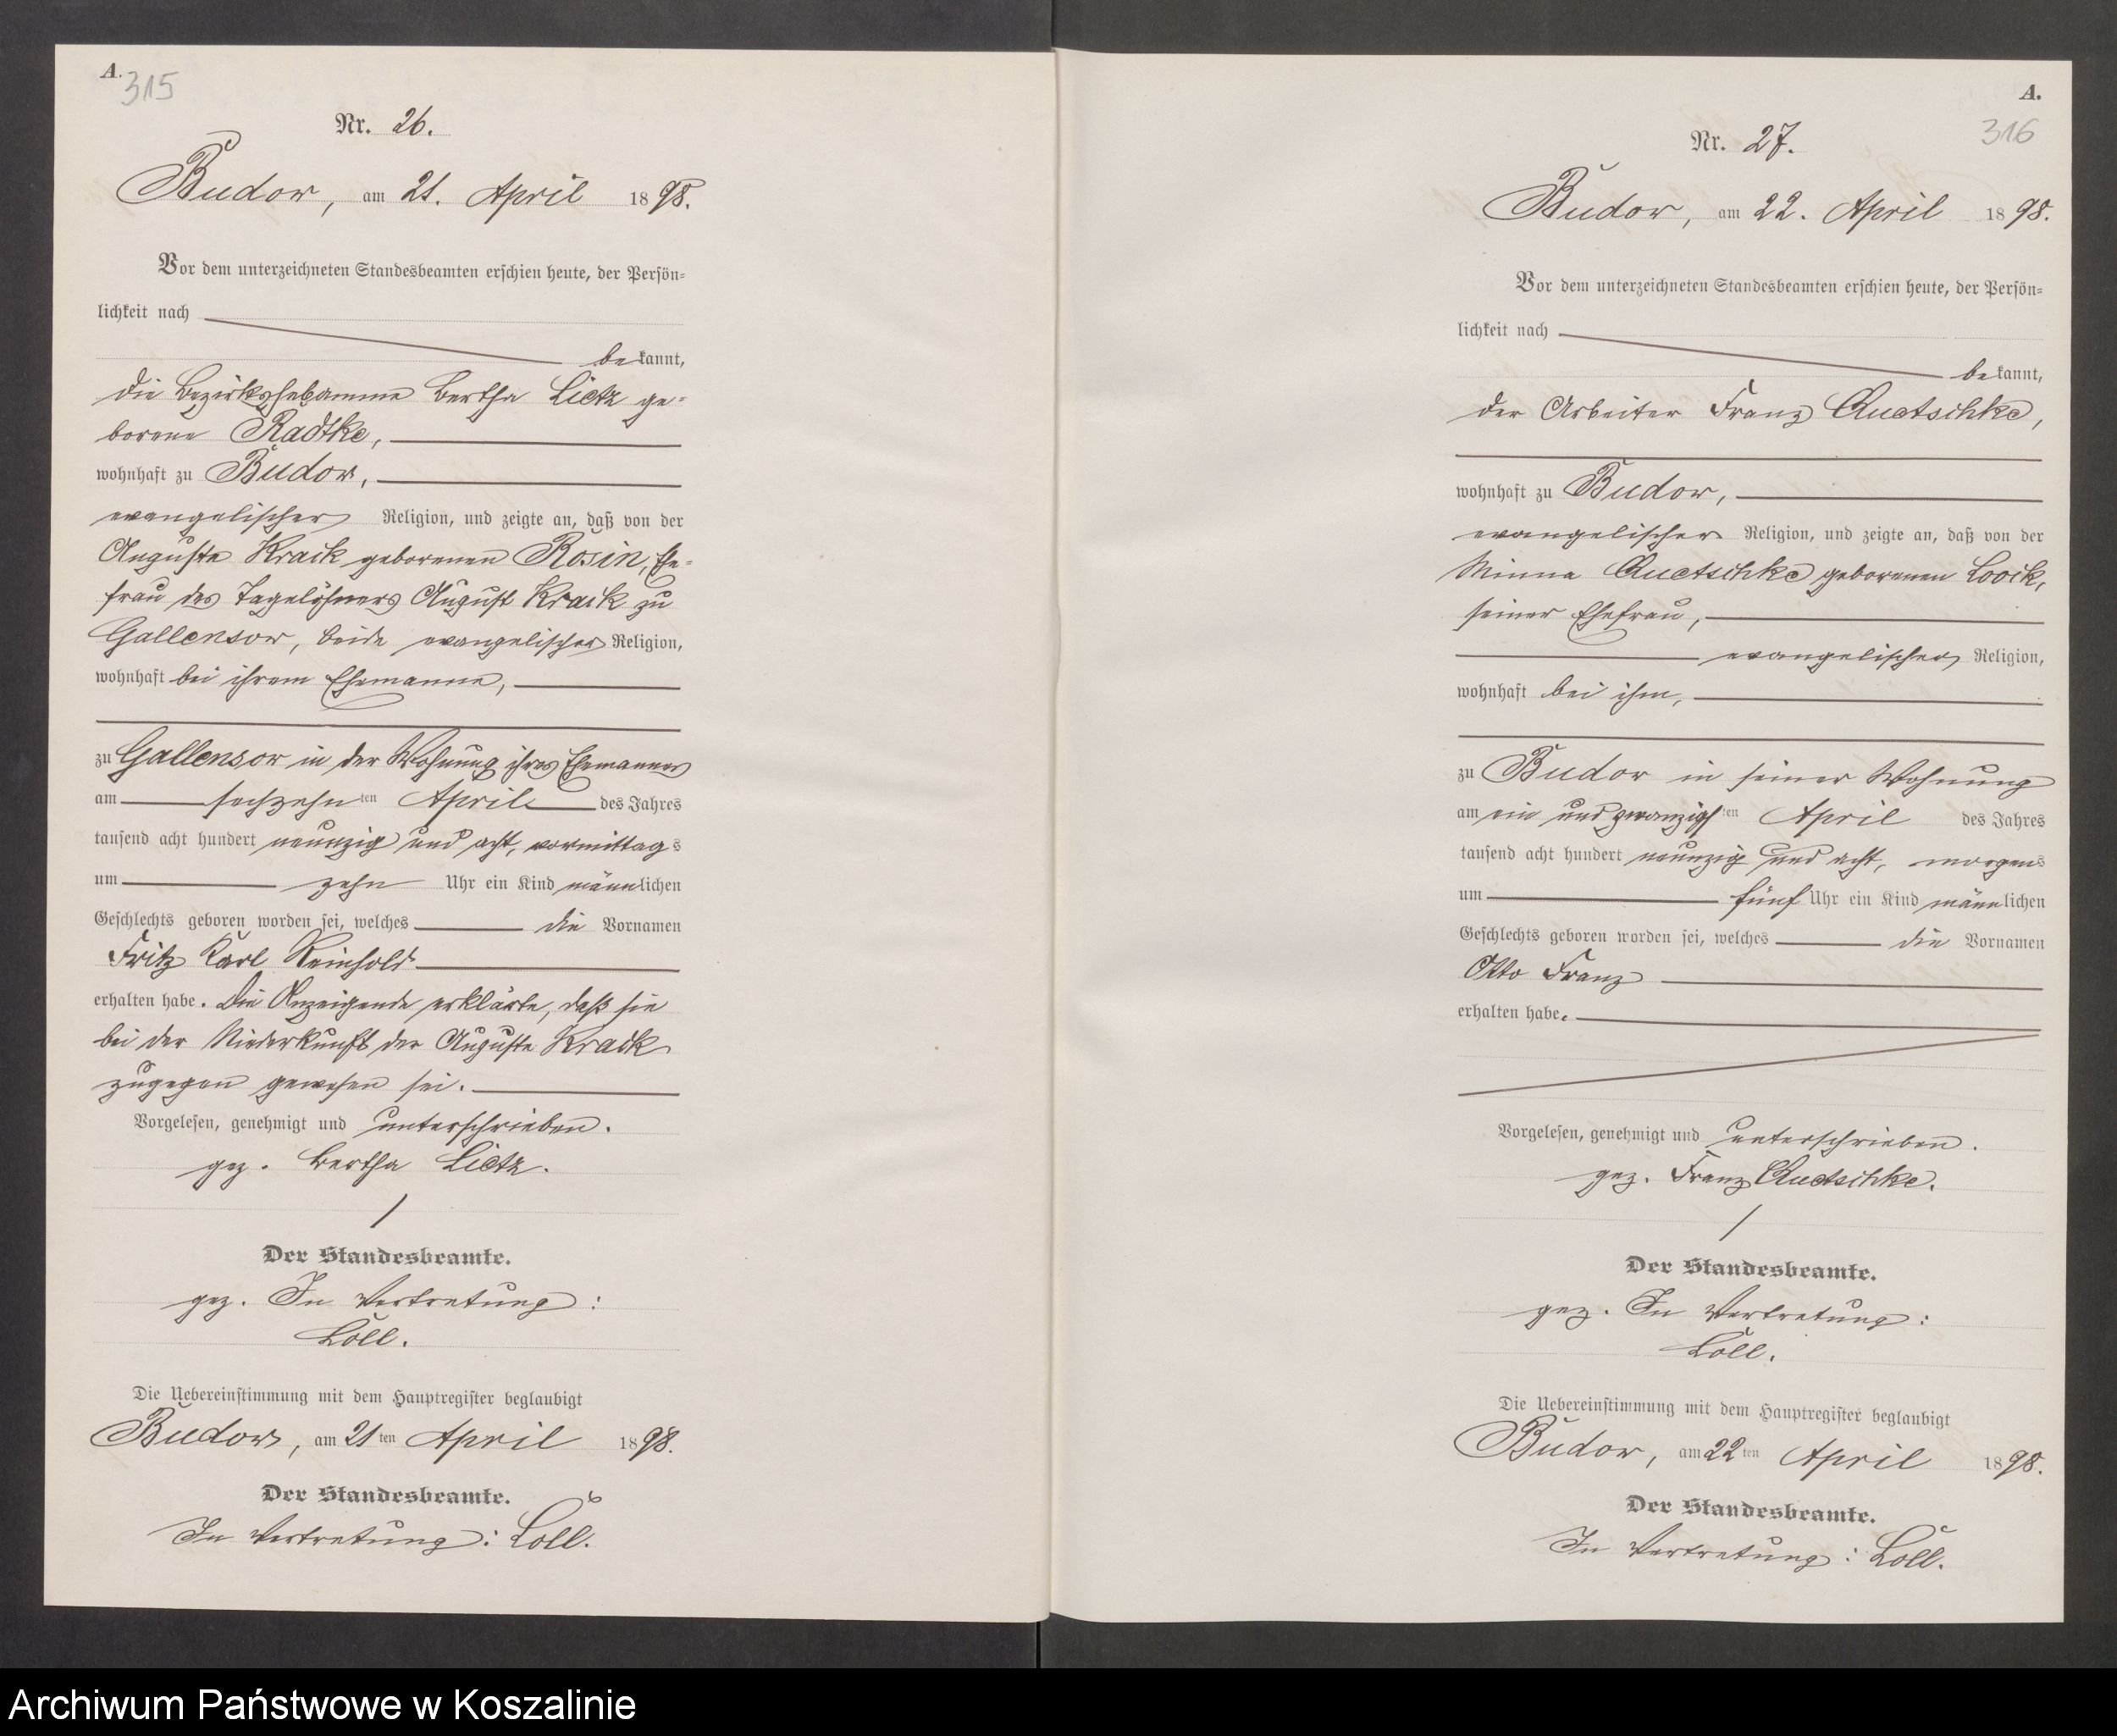 A.
315
Nr. 26.
Budow, am 21. April 1898.
Vor dem unterzeichneten Standesbeamten erschien heute, der Persön-
lichkeit nach
bekannt,
die Bezirkshebamme Bertha Lietz ge-
borene Radtke,
wohnhaft zu Budow,
evangelischer Religion, und zeigte an, daß von der
Auguste Krack geborenen Rosin, Ehe-
frau des Tagelöhners August Krack zu
Gallensow, beide evangelischer Religion,
wohnhaft bei ihrem Ehemanne,
zu Gallensow in der Wohnung ihres Ehemannes
am sechzehnten April des Jahres
tausend acht hundert neunzig und acht, vormittags
um zehn Uhr ein Kind männlichen
Geschlechts geboren worden sei, welches die Vornamen
Fritz Karl Reinhold
erhalten habe. Die Anzeigende erklärte, daß sie
bei der Niederkunft der Auguste Krack
zugegen gewesen sei.
Vorgelesen, genehmigt und unterschrieben.
gez. Bertha Lietz.
Der Standesbeamte.
gez. In Vertretung:
Löll.
Die Uebereinstimmung mit dem Hauptregister beglaubigt
Budow, am 21ten April 1898.
Der Standesbeamte.
In Vertretung: Löll.
A.
316
Nr. 27.
Budow, am 22. April 1898.
Vor dem unterzeichneten Standesbeamten erschien heute, der Persön-
lichkeit nach
bekannt,
der Arbeiter Franz Quetschke,
wohnhaft zu Budow,
evangelischer Religion, und zeigte an, daß von der
Minna Quetschke geborenen Loock,
seiner Ehefrau,
evangelischer Religion,
wohnhaft bei ihm,
zu Budow in seiner Wohnung
am ein und zwanzigsten April des Jahres
tausend acht hundert neunzig und acht, morgens
um fünf Uhr ein Kind männlichen
Geschlechts geboren worden sei, welches die Vornamen
Otto Franz
erhalten habe.
Vorgelesen, genehmigt und unterschrieben.
gez. Franz Quetschke.
Der Standesbeamte.
gez. In Vertretung:
Löll.
Die Uebereinstimmung mit dem Hauptregister beglaubigt
Budow, am 22ten April 1898.
Der Standesbeamte.
In Vertretung: Löll.
Archiwum Państwowe w Koszalinie